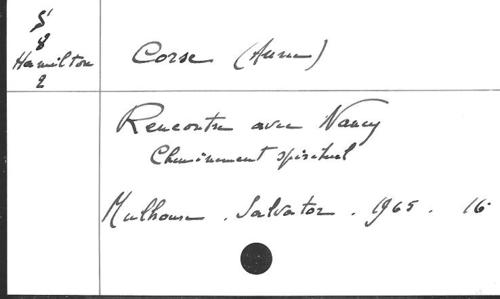 S
8
Hamilton
2
Corse (Anne)
Rencontre avec Nancy
Cheminement spirituel
Mulhouse . Salvator . 1965 . 16